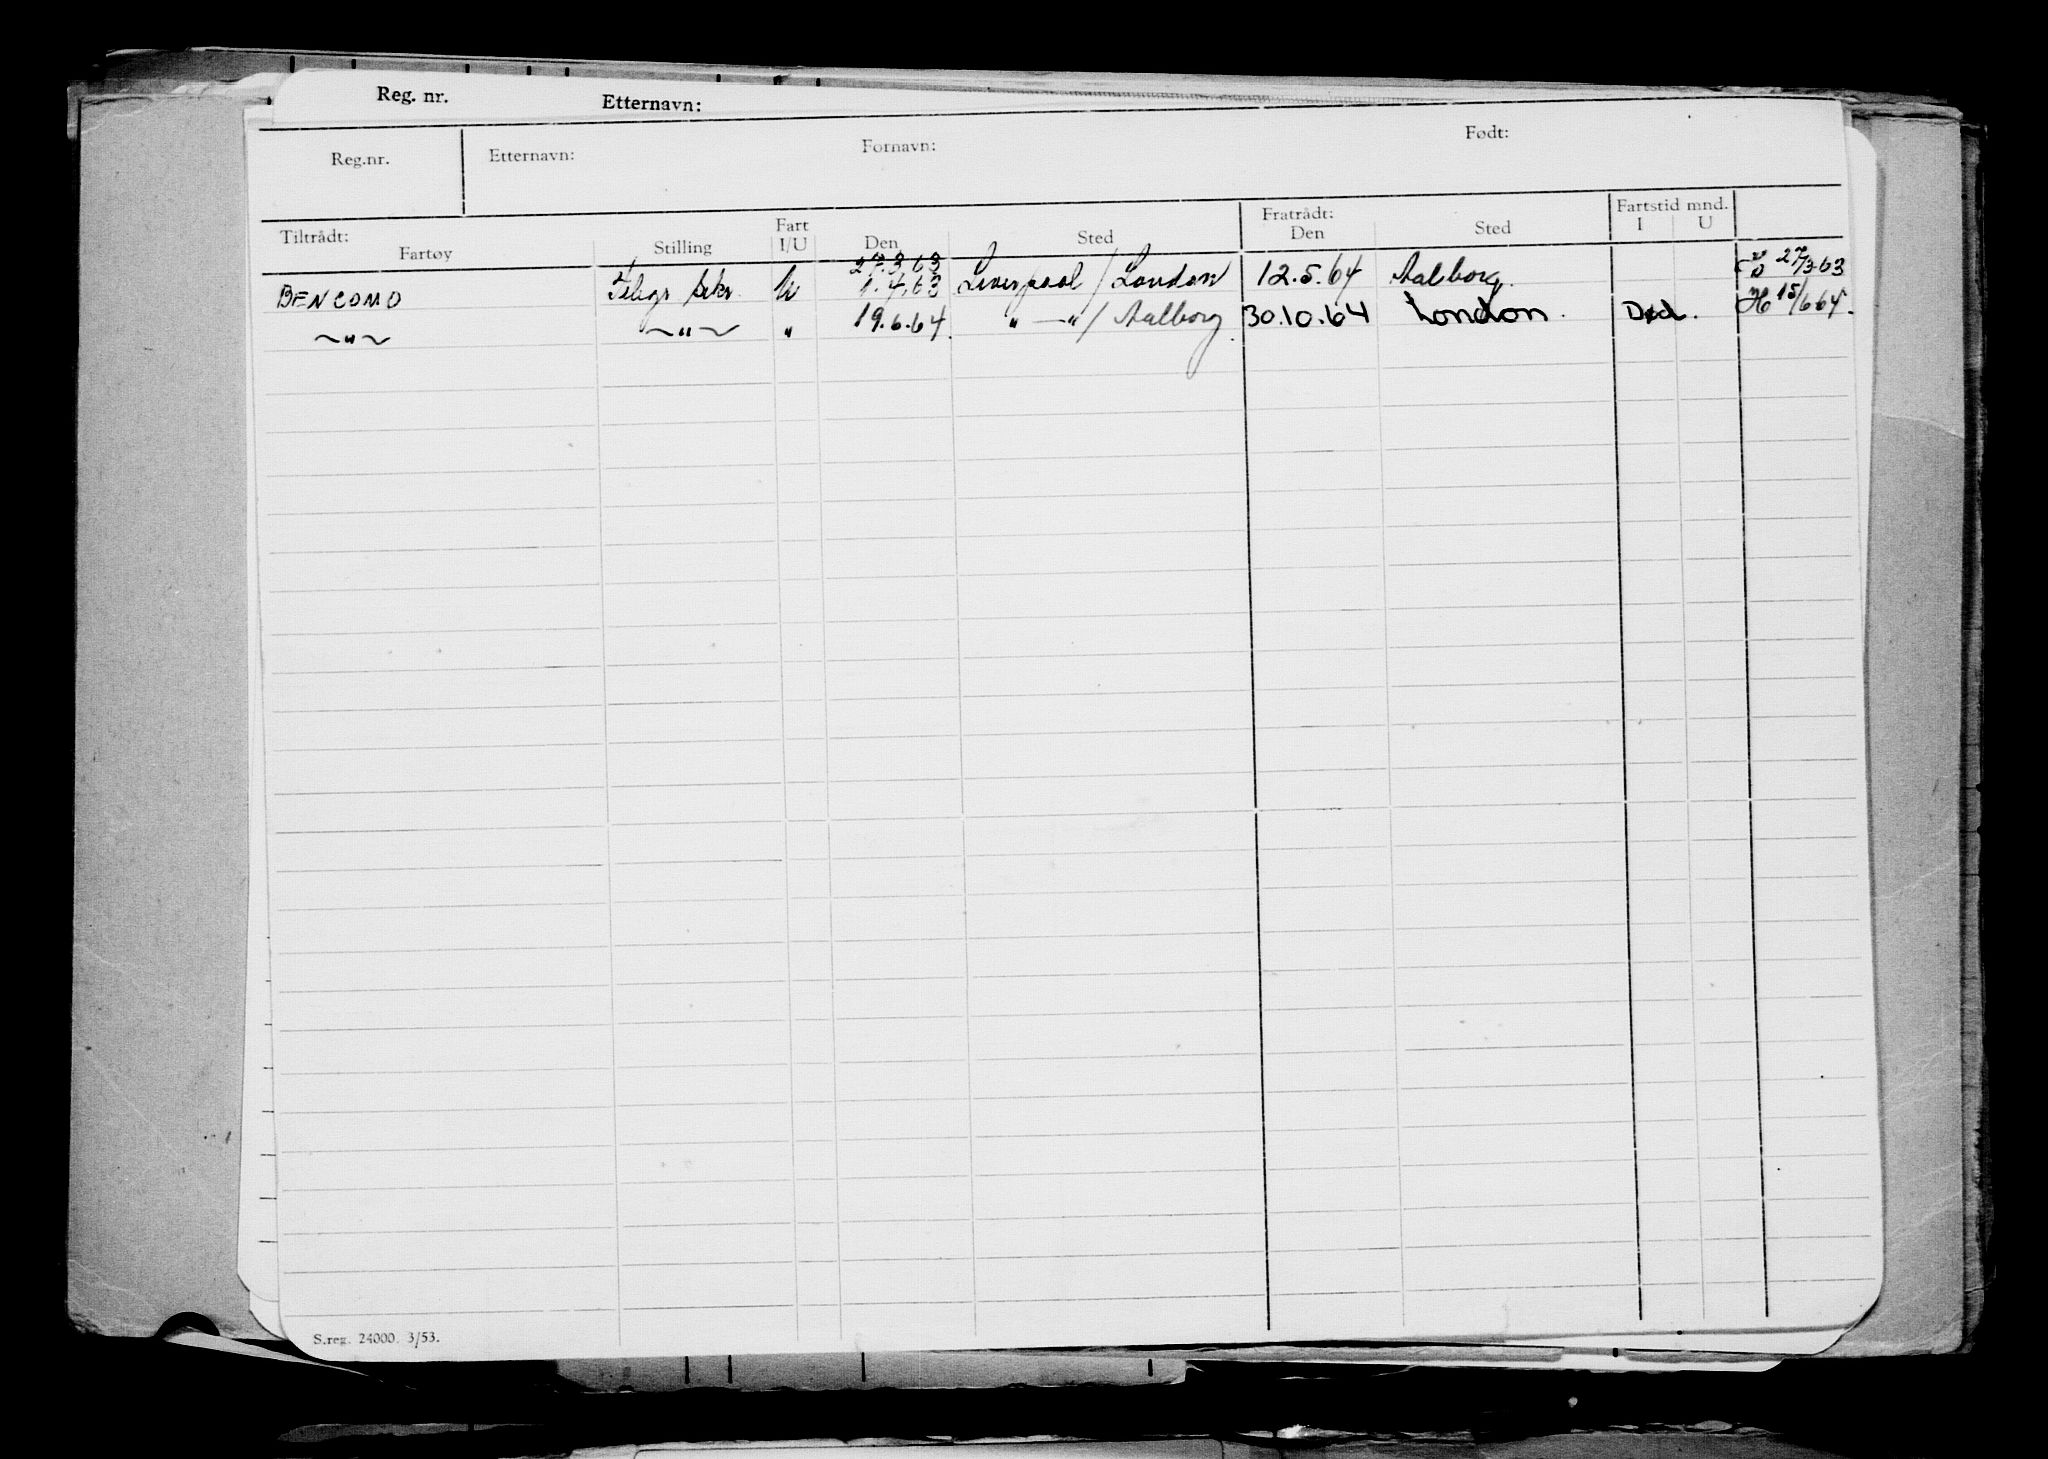 Reg. nr. Etternavn:
Reg.nr. Etternavn: Fornavn: Født:
Tiltrådt: Fart Fratrådt: Fartstid mnd.
Fartøy Stilling I/U Den Sted Den Sted I U
27.3.63
BENCOMO Telegr. U 1.4.63 Liverpool / London 12.5.64 Aalborg. 27/3-63
~"~ ~"~ " 19.6.64. " —"/ Aalborg. 30.10.64 London. Død. H 15/6 64.
S.reg. 24000. 3/53.